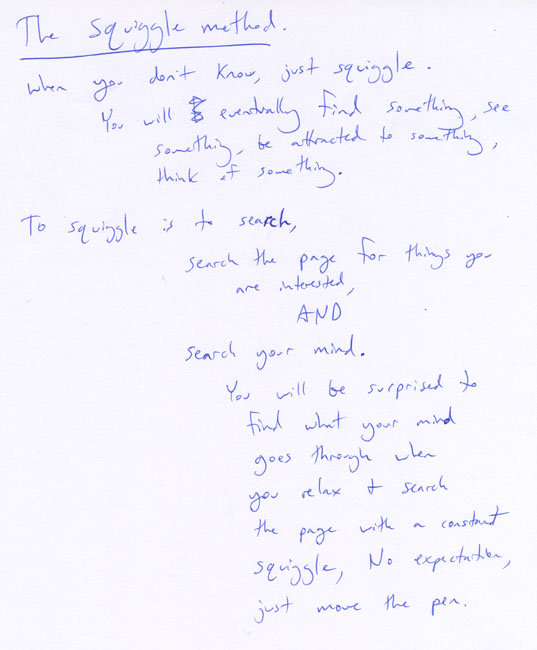 The Squiggle method.
When you don't know, just squiggle.
You will eventually find something, see
something, be attracted to something,
think of something.
To squiggle is to search,
search the page for things you
are interested,
AND
search your mind.
You will be surprised to
find what your mind
goes through when
you relax & search
the page with a constant
squiggle, No expectation,
just move the pen.